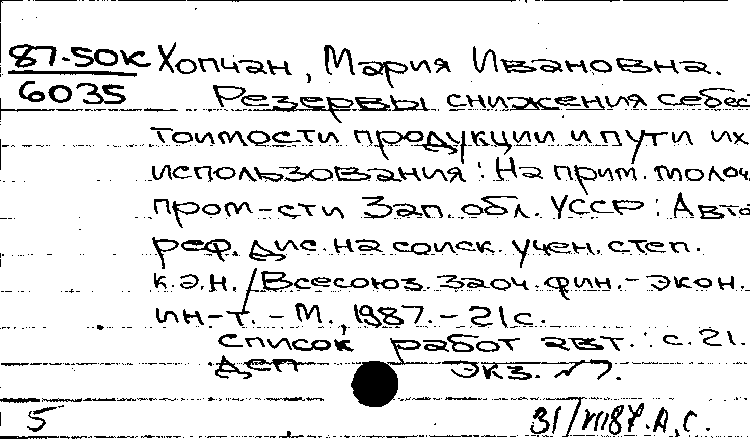 87-50К Хопчан, Мария Ивановна.
6035 Резервы снижения себес
тоимости продукции и пути их
использования: На прим. молоч
пром-сти Зап. обл. УССР: Авто
реф. дис. на соиск. учен. степ.
к.э.н. / Всесоюз. заоч. фин.-экон.
ин-т. - М., 1987. - 21с.
Список работ авт.: с. 21.
ДСП экз. №7.
5 31/VII87. А.С.